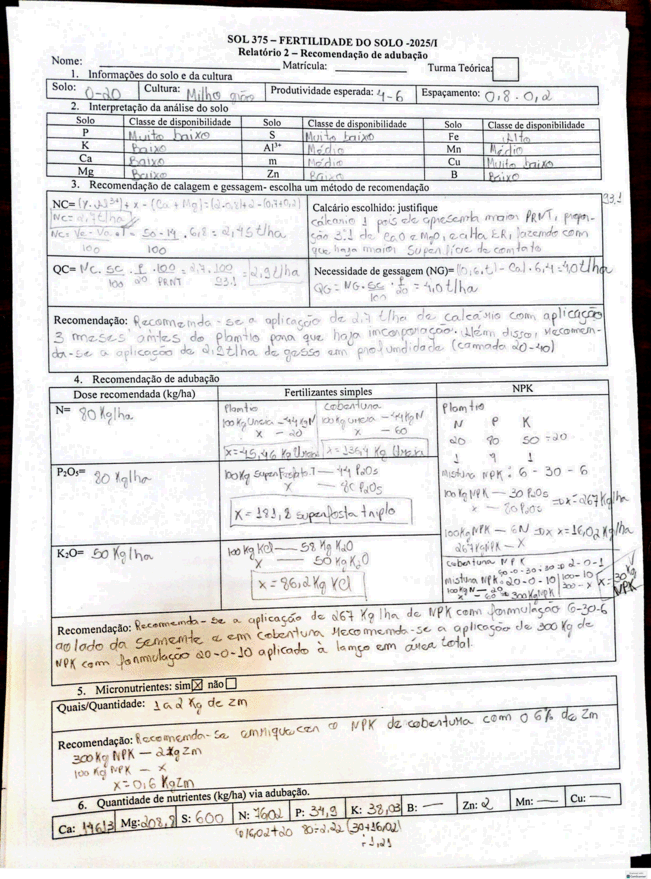 SOL 375 – FERTILIDADE DO SOLO -2025/I
Relatório 2 – Recomendação de adubação
Nome: Matrícula: Turma Teórica:
1. Informações do solo e da cultura
Solo: 0-20 Cultura: Milho grão Produtividade esperada: 4-6 Espaçamento: 0,8 . 0,2
2. Interpretação da análise do solo
Solo Classe de disponibilidade Solo Classe de disponibilidade Solo Classe de disponibilidade
P Muito baixo S Muito baixo Fe
K Baixo Al3+ Médio Mn Médio
Ca Baixo m Médio Cu Muito baixo
Mg Baixo Zn Baixo B Baixo
3. Recomendação de calagem e gessagem- escolha um método de recomendação
NC= (Y.Al3+) + x - (Ca + Mg) = (2.0,8)+2-(0,7+0,2)
NC= 2,7 t/ha
NC= Ve-Va . T = 50-14 . 6,8 = 2,45 t/ha
100 100
Calcário escolhido: justifique 93.1
calcário 1 pois apresenta maior PRNT, propor-
ção 3:1 de CaO e MgO, e alta ER, fazendo com
que haja maior superfície de contato
QC= NC . SC . P . 100 = 2,7 . 100 = 2,9 t/ha
100 20 PRNT 93.1
Necessidade de gessagem (NG)= (0,6.t) - Cal . 6,4 = 4,0 t/ha
QG = NG . SC . P = 4,0 t/ha
100 20
Recomendação: Recomenda-se a aplicação de 2,7 t/ha de calcária com aplicação
3 meses antes do plantio para que haja incorporação. Além disso, recomen-
da-se a aplicação de t/ha de gesso em profundidade (camada 20-40)
4. Recomendação de adubação
Dose recomendada (kg/ha) Fertilizantes simples NPK
N= 80 Kg/ha
Plantio Cobertura
100 Kg Ureia - 44 Kg N 100 Kg Ureia - 44 Kg N
x - 20 x - 60
x = 45,46 Kg Ureia x = 136,4 Kg Ureia
Plantio
N P K
20 80 50 ÷20
1 4 1
mistura NPK: 6 - 30 - 6
P2O5= 80 Kg/ha
100 Kg superfosfato.T - 44 P2O5
x - 80 P2O5
x = 181,8 superfosfato triplo
100 Kg NPK - 30 P2O5 => x = 267 Kg/ha
x - 80 P2O5
100 Kg NPK - 6N => x = 16,02 Kg/ha
267 Kg NPK - x
K2O= 50 Kg/ha
100 Kg KCl - 58 Kg K2O
x - 50 Kg K2O
x = 86,2 Kg KCl
cobertura NPK
60-0-30 ÷30 => 2-0-1
mistura NPK: 20-0-10 100-10 x = 30 Kg NPK
100 Kg N - 20 300 - x
x - 60 = 300 Kg NPK
Recomendação: Recomenda-se a aplicação de 267 Kg/ha de NPK com formulação 6-30-6
ao lado da semente e em cobertura recomenda-se a aplicação de 300 Kg de
NPK com formulação 20-0-10 aplicado à lanço em área total.
5. Micronutrientes: sim ☒ não ☐
Quais/Quantidade: 1 a 2 Kg de Zn
Recomendação: Recomenda-se enriquecer o NPK de cobertura com 0,6% de Zn
300 Kg NPK - 2 Kg Zn
100 Kg NPK - x
x = 0,6 Kg Zn
6. Quantidade de nutrientes (kg/ha) via adubação.
Ca: 1461,3 Mg: 208,8 S: 600 N: 7602 P: 34,9 K: 38,03 B: — Zn: 2 Mn: — Cu: —
16,02+20 80÷2,22 (30+16,02)
÷1,21